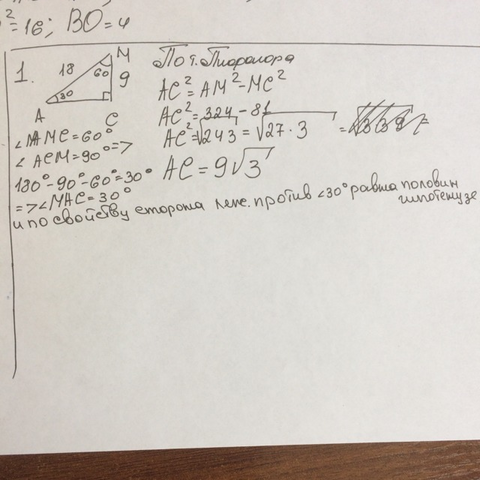 ²=16; BO=4
1.
M
18
60
9
30
A
C
По т. Пифагора
AC²=AM²-MC²
AC²=324-81
AC²=√243=√27·3
AC=9√3
∠AMC=60°
∠ACM=90°=>
180°-90°-60°=30°
=>∠MAC=30°
и по свойству сторона леж. против ∠30° равна половин
гипотенузе